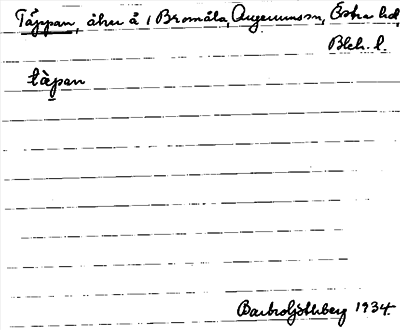 Täppan, åker å 1 Bromåla, Augerumssn, Östra hd,
Blek. l.
tàpan
Barbro Söderberg 1934.